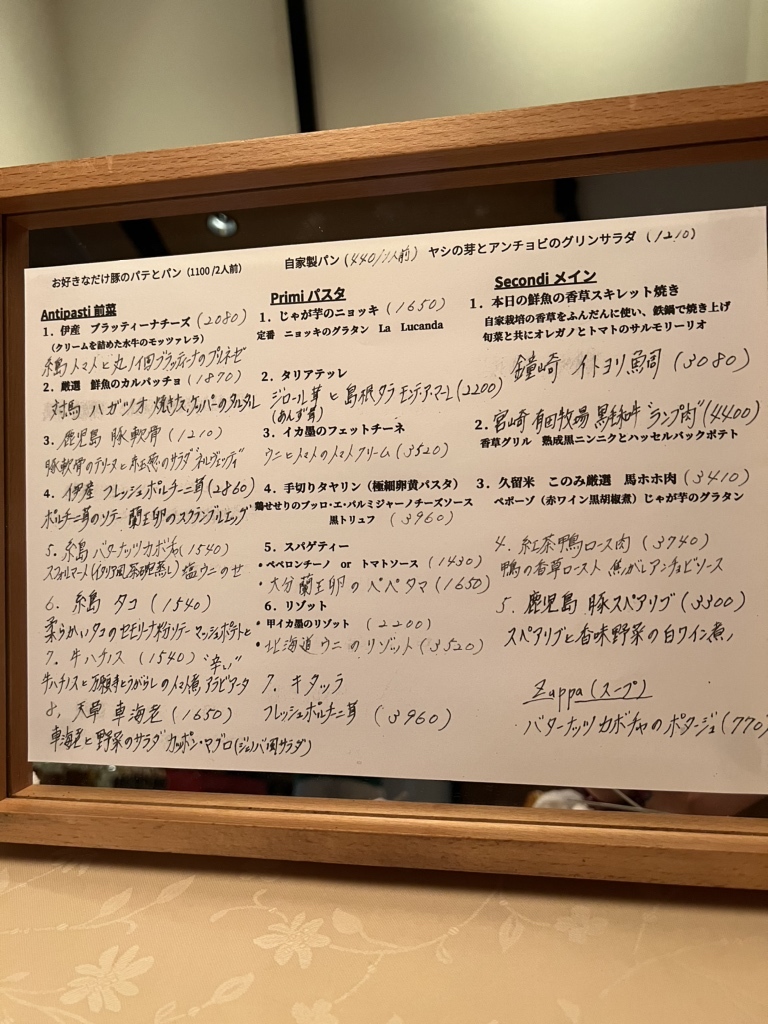 お好きなだけ豚のパテとパン（1100 /2人前）
自家製パン（440/2人前）
ヤシの芽とアンチョビのグリンサラダ（1210）
Antipasti 前菜
1. 伊産 ブラッティーナチーズ（2080）
（クリームを詰めた水牛のモッツァレラ）
糸島トマトと丸ノ佃ブラッティーナのプリネゼ
2. 厳選 鮮魚のカルパッチョ（1870）
対馬 ハガツオ 焼きナス、ケッパーのタルタル
3. 鹿児島 豚軟骨（1210）
豚軟骨のテリーヌと赤玉葱のサラダ ネルヴェッティ
4. 伊産 フレッシュポルチーニ茸（2860）
ポルチーニ茸のソテー 蘭王卵のスクランブルエッグ
5. 糸島 バターナッツカボチャ（1540）
スフォルマート（イタリア風茶碗蒸し）塩ウニのせ
6. 糸島 タコ（1540）
柔らかいタコのセモリナ粉ソテー マッシュポテトと
7. 牛ハチノス（1540）"辛い"
牛ハチノスと万願寺とうがらしのトマト煮 アラビアータ
8. 天草 車海老（1650）
車海老と野菜のサラダ カッポン・マグロ（ジェノバ風サラダ）
Primi パスタ
1. じゃが芋のニョッキ（1650）
定番 ニョッキのグラタン La Lucanda
2. タリアテッレ
ジロール茸と島根タラ モンテ・ア・マーレ（2200）
（あんず茸）
3. イカ墨のフェットチーネ
ウニとトマトのトマトクリーム（3520）
4. 手切りタヤリン（極細卵黄パスタ）
鶏せせりのブッロ・エ・パルミジャーノチーズソース
黒トリュフ（3960）
5. スパゲティー
・ペペロンチーノ or トマトソース（1430）
・大分 蘭王卵のペペタマ（1650）
6. リゾット
・甲イカ墨のリゾット（2200）
・北海道 ウニのリゾット（3520）
7. キタッラ
フレッシュポルチーニ茸（3960）
Secondi メイン
1. 本日の鮮魚の香草スキレット焼き
自家栽培の香草をふんだんに使い、鉄鍋で焼き上げ
旬菜と共にオレガノとトマトのサルモリーリオ
鐘崎 イトヨリ鯛（3080）
2. 宮崎 有田牧場 黒毛和牛 "ランプ肉"（4400）
香草グリル 熟成黒ニンニクとハッセルバックポテト
3. 久留米 このみ厳選 馬ホホ肉（3410）
ペポーゾ（赤ワイン黒胡椒煮）じゃが芋のグラタン
4. 紅茶鴨ロース肉（3740）
鴨の香草ロースト 焦がしアンチョビソース
5. 鹿児島 豚スペアリブ（3300）
スペアリブと香味野菜の白ワイン煮
Zuppa（スープ）
バターナッツカボチャのポタージュ（770）